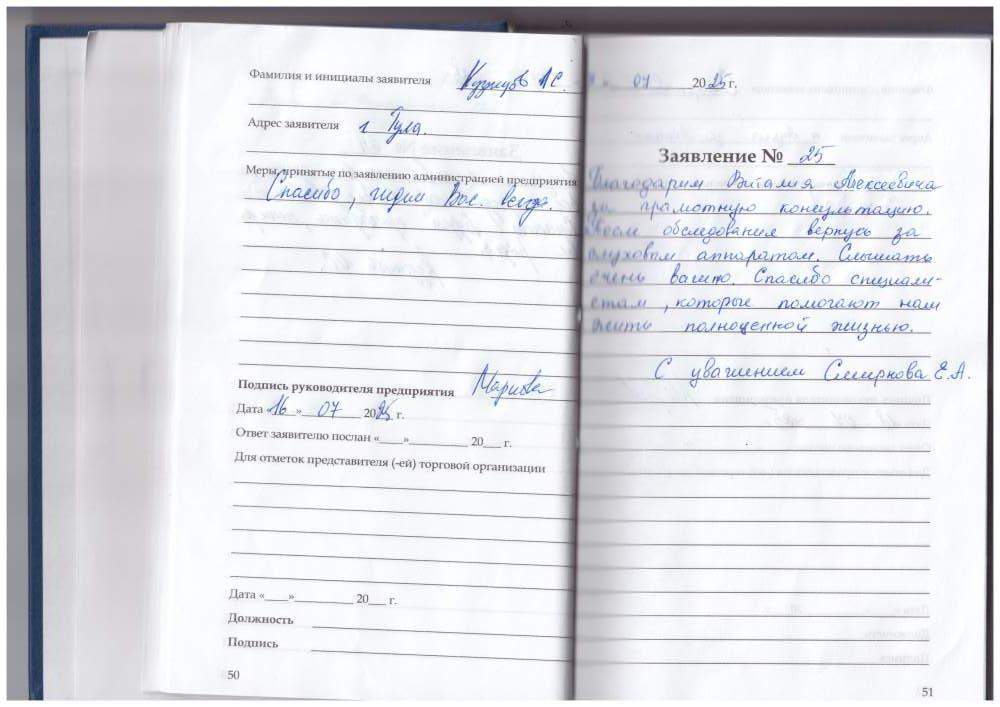 Фамилия и инициалы заявителя Кузнецов А.С.
Адрес заявителя г Тула.
Меры, принятые по заявлению администрацией предприятия
Спасибо, Вас всегда.
Подпись руководителя предприятия
Дата «16 » 07 2025 г.
Ответ заявителю послан «____»__________ 20___ г.
Для отметок представителя (-ей) торговой организации
Дата «____»__________ 20___ г.
Должность
Подпись
50
07 2025 г.
Заявление № 25
Благодарим Виталия Алексеевича
за грамотную консультацию.
После обследования вернусь за
слуховым аппаратом. Слышать
очень важно. Спасибо специали-
стам, которые помогают нам
жить полноценной жизнью.
С уважением Смирнова Е.А.
51